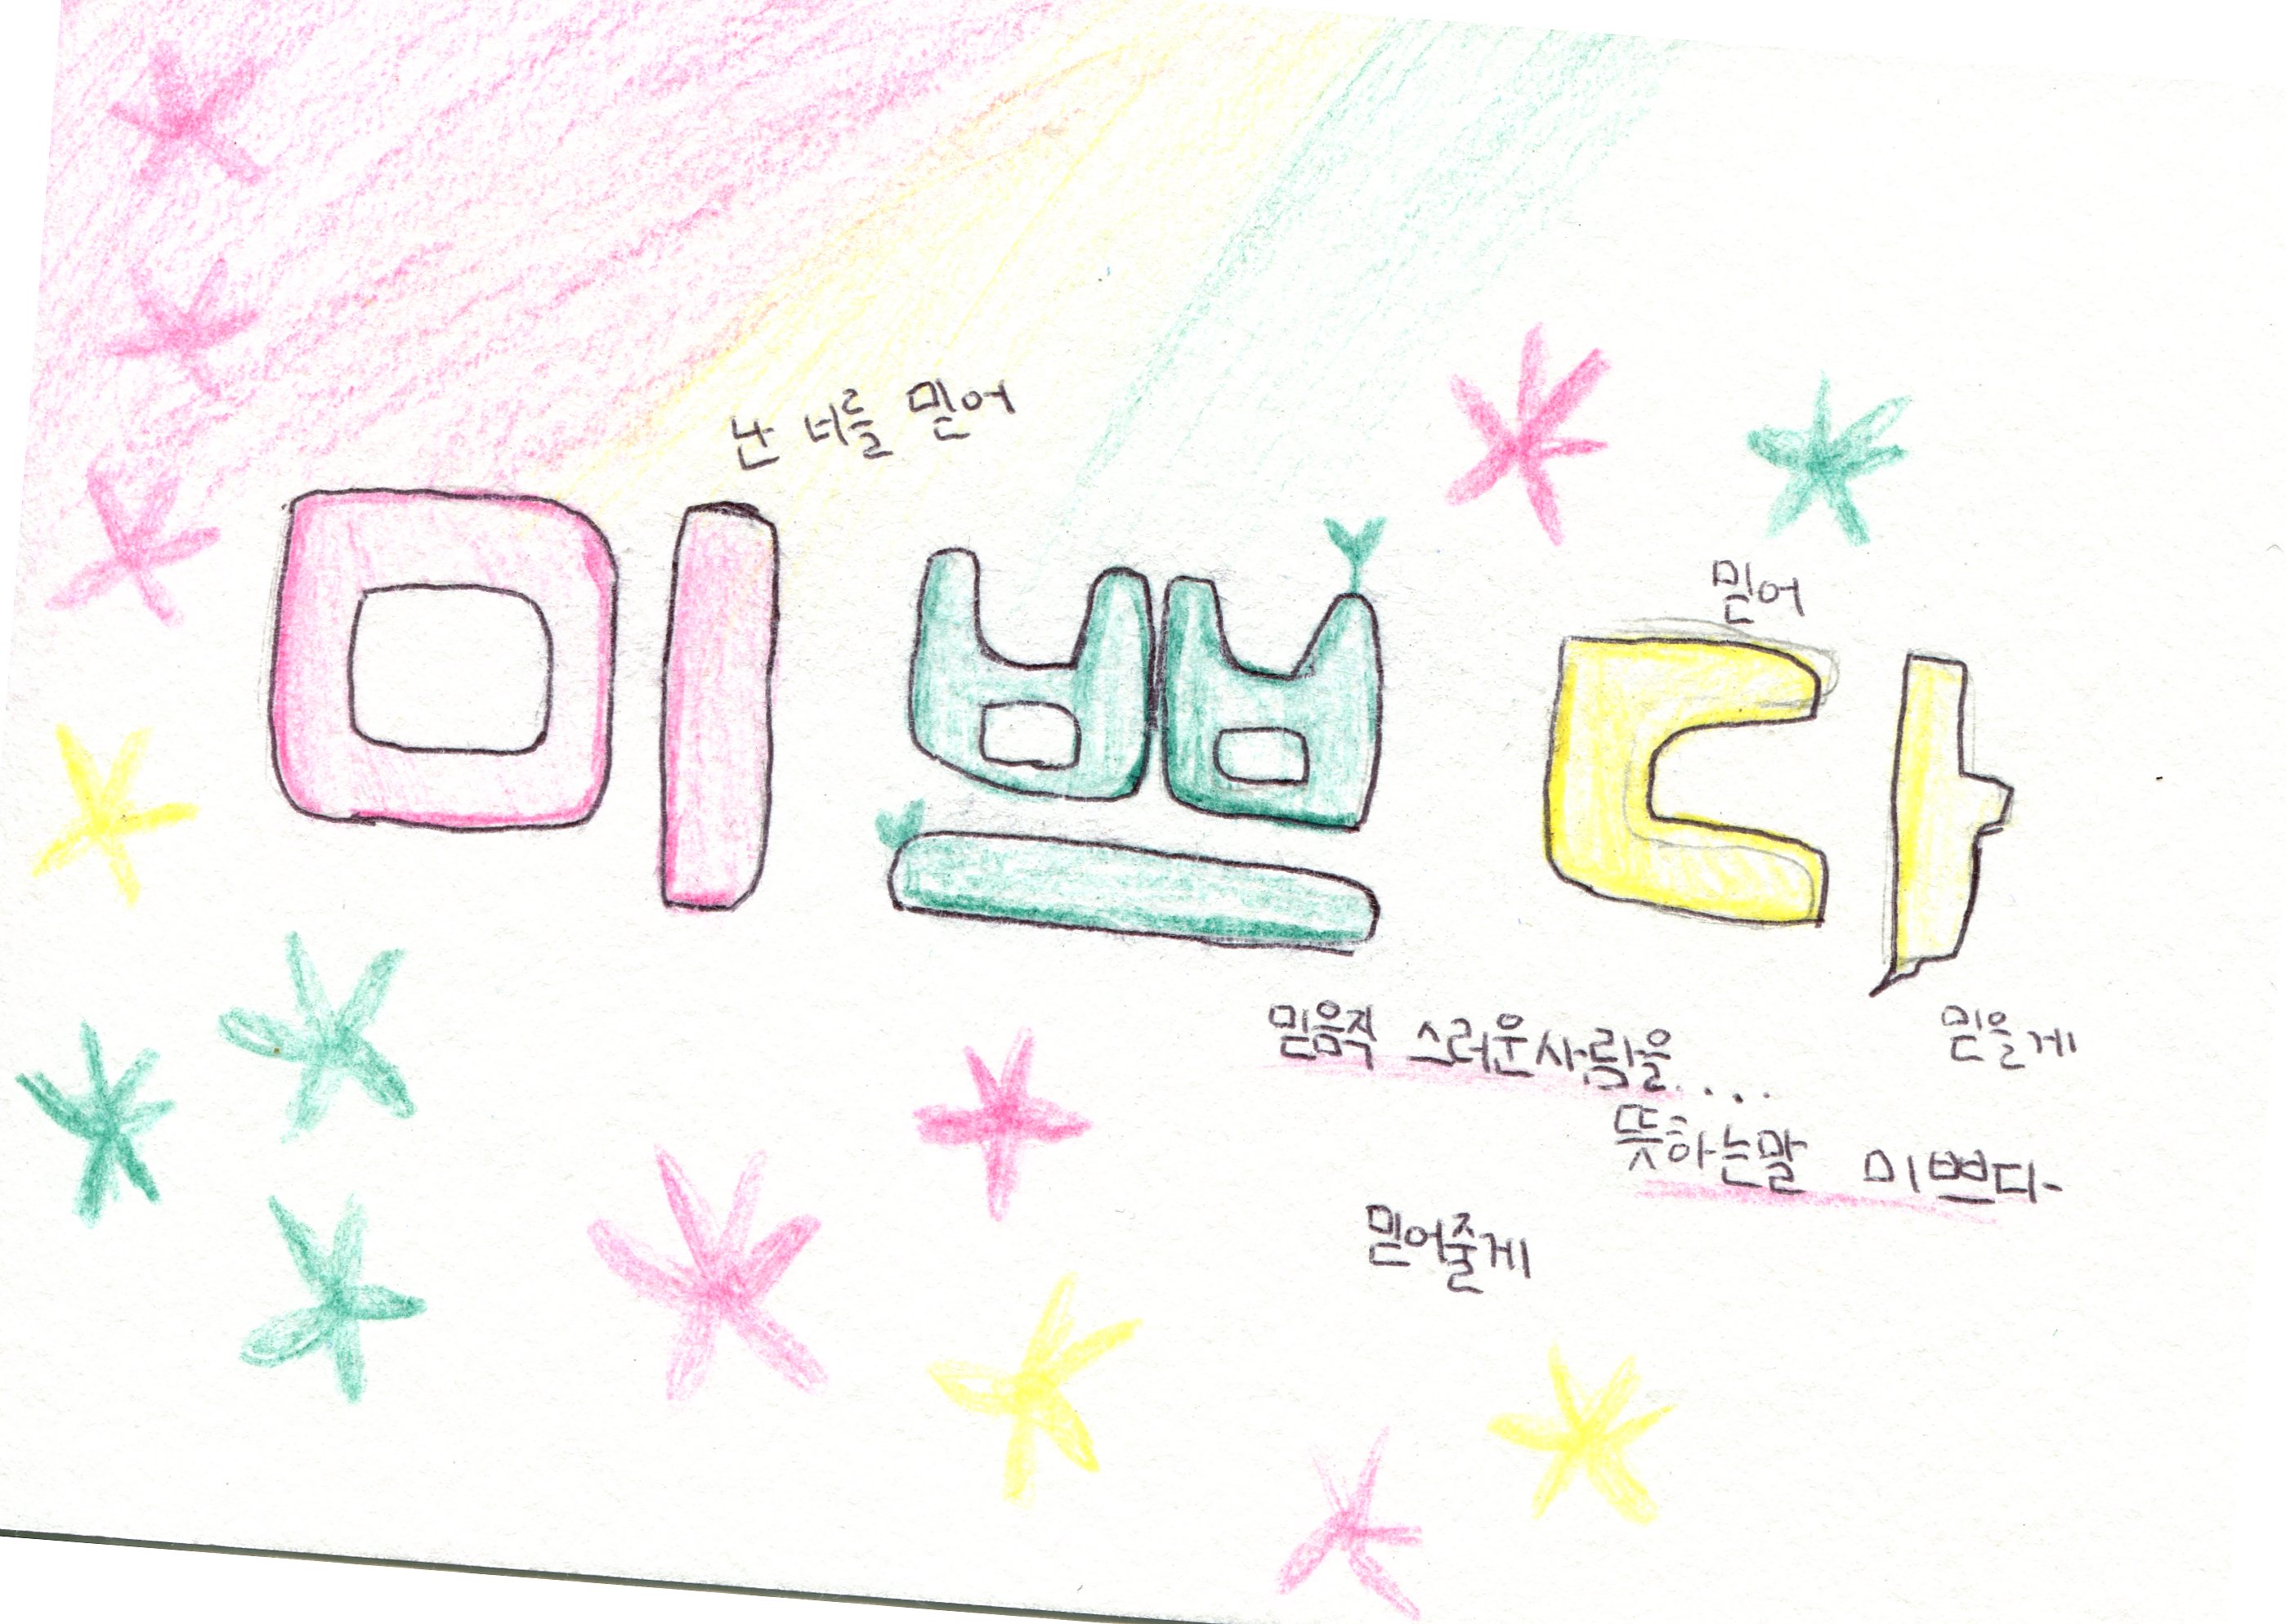 난 너를 믿어
미쁘다
믿어
믿음직 스러운사람을....
믿을게
뜻하는말 미쁘다-
믿어줄게